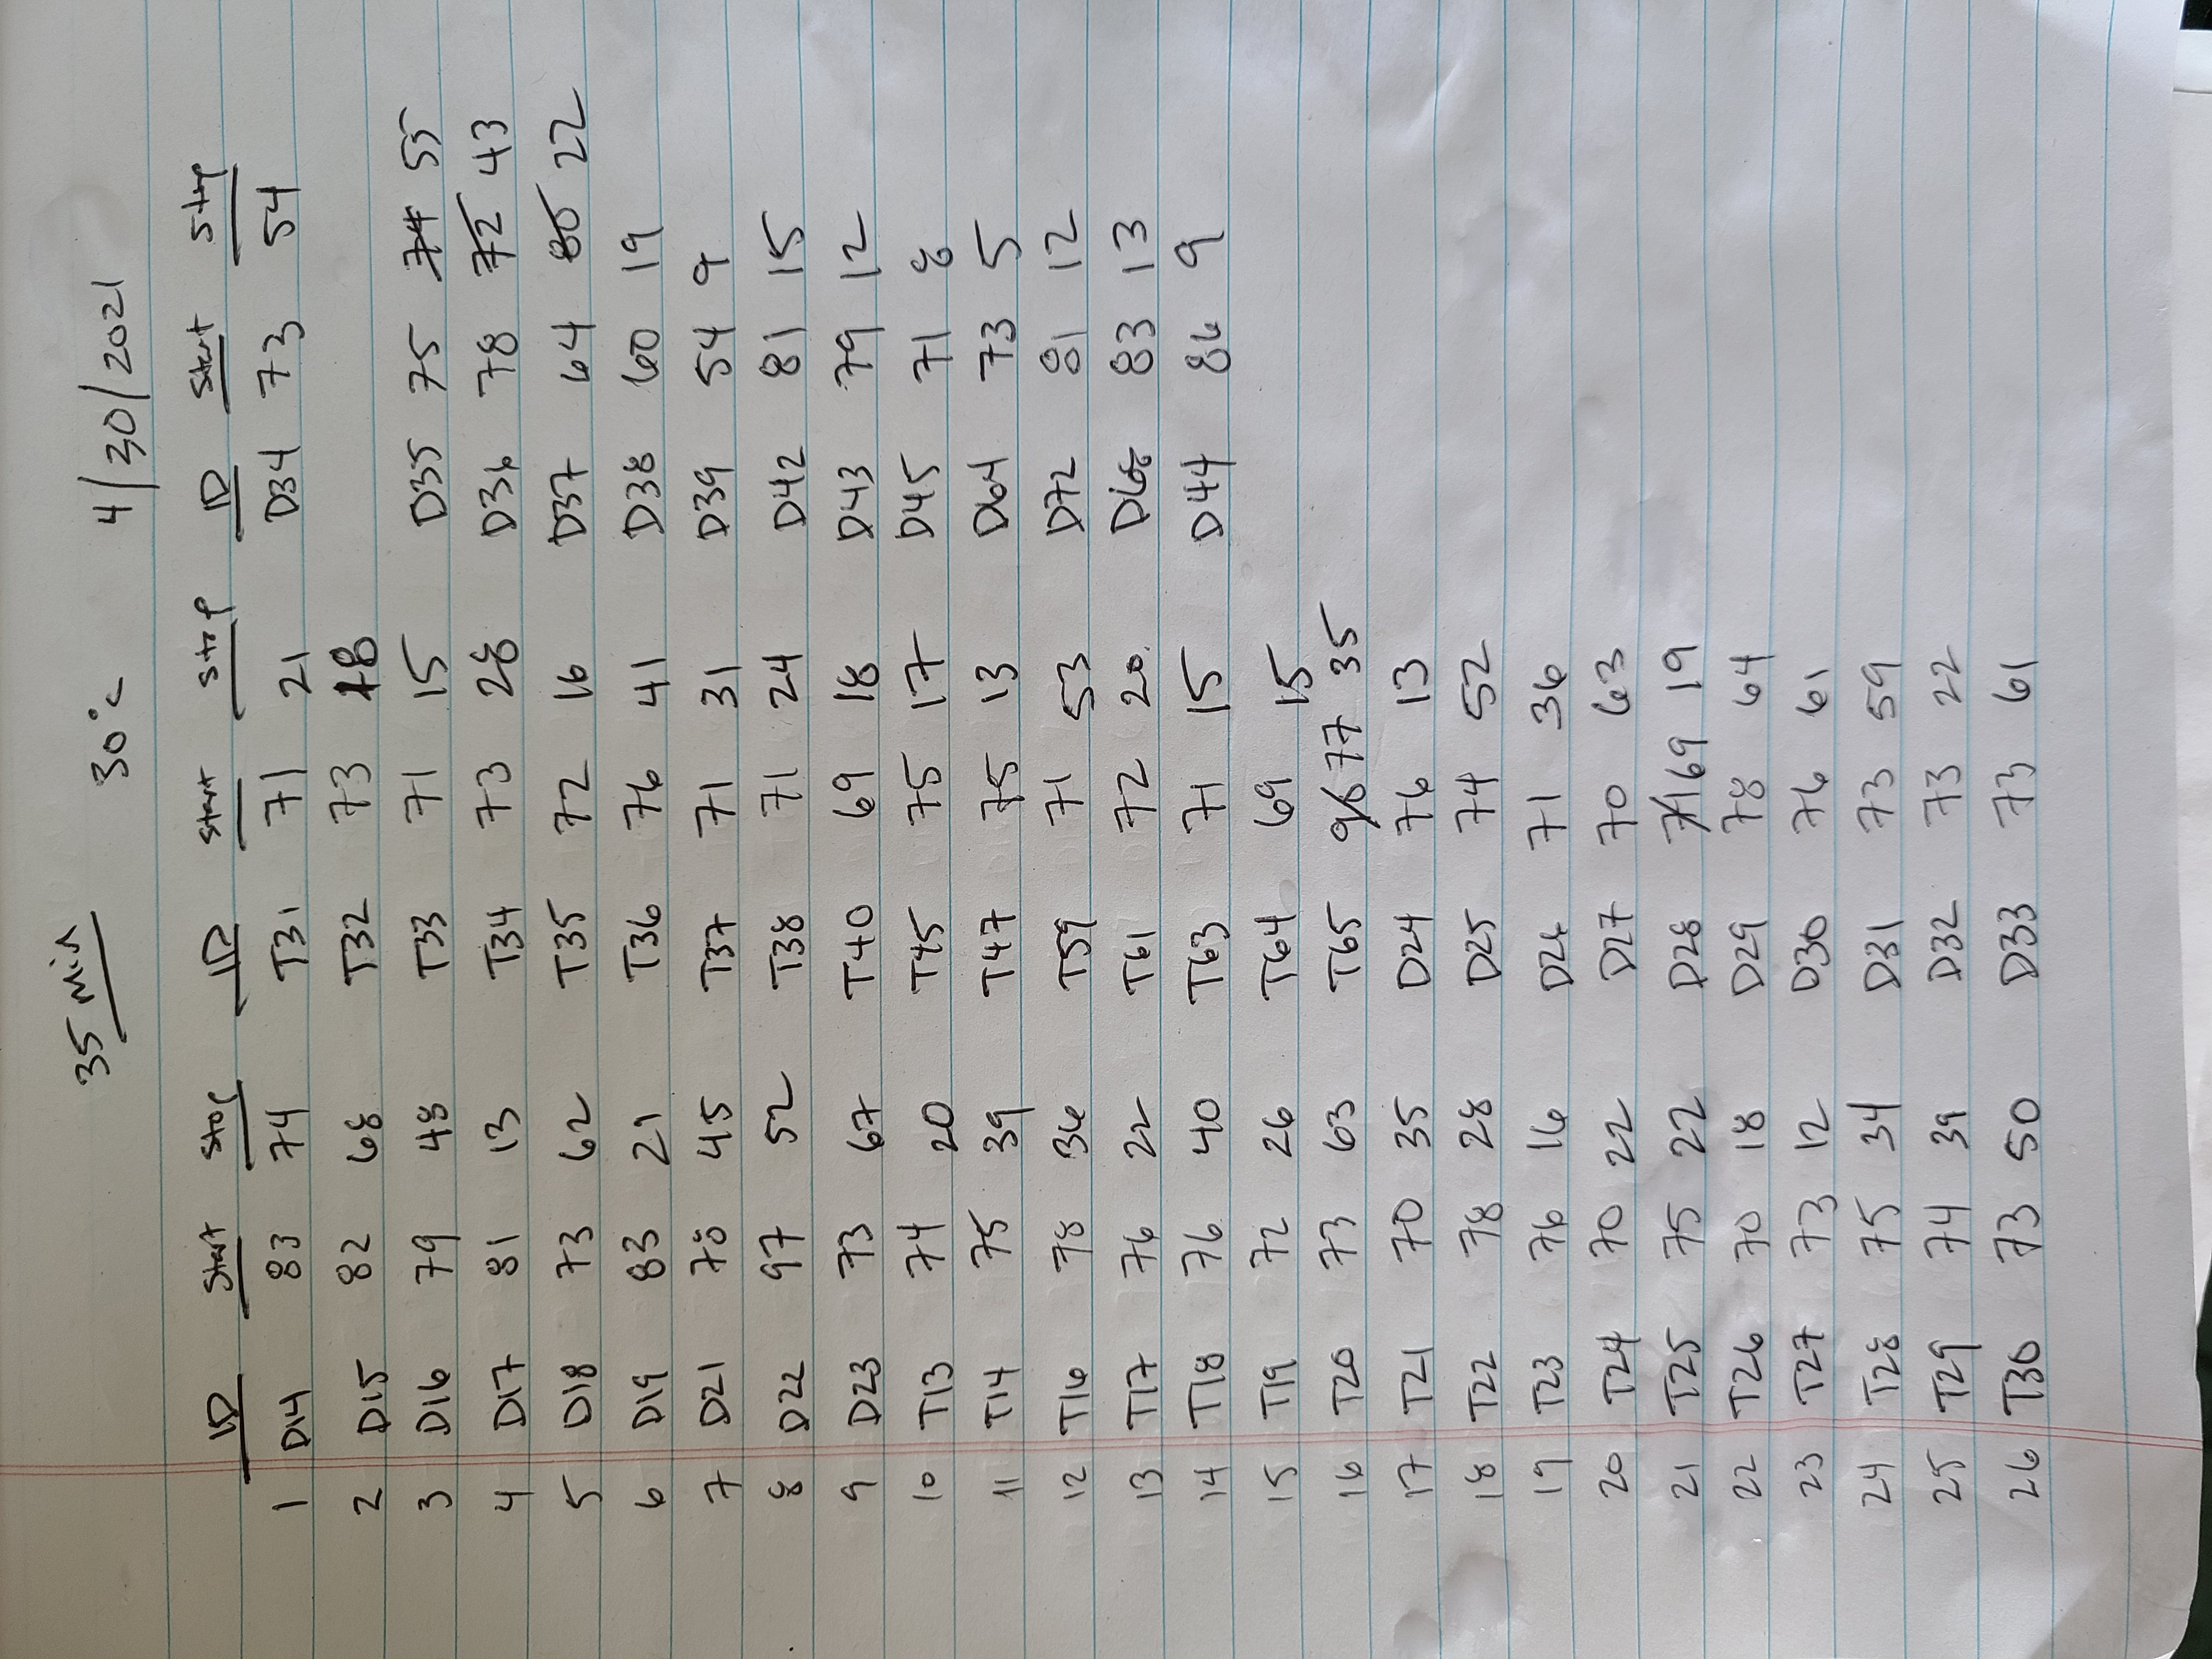 35 min 30°C 4/30/2021
ID Start Stop ID Start Stop ID Start Stop
1 D14 83 74 T31 71 21 D34 73 54
2 D15 82 68 T32 73 18
3 D16 79 48 T33 71 15 D35 75 74 55
4 D17 81 13 T34 73 28 D36 78 72 43
5 D18 73 62 T35 72 16 D37 64 80 22
6 D19 83 21 T36 76 41 D38 60 19
7 D21 78 45 T37 71 31 D39 54 9
8 D22 97 52 T38 71 24 D42 81 15
9 D23 73 67 T40 69 18 D43 79 12
10 T13 74 20 T45 75 17 D45 71 8
11 T14 75 39 T47 75 13 D64 73 5
12 T16 78 36 T59 71 53 D72 81 12
13 T17 76 22 T61 72 20 D68 83 13
14 T18 76 40 T63 71 15 D44 86 9
15 T19 72 26 T64 69 15
16 T20 73 63 T65 96 77 35
17 T21 70 35 D24 76 13
18 T22 78 28 D25 74 52
19 T23 76 16 D26 71 36
20 T24 70 22 D27 70 63
21 T25 75 22 D28 71 69 19
22 T26 70 18 D29 78 64
23 T27 73 12 D30 76 61
24 T28 75 34 D31 73 59
25 T29 74 39 D32 73 22
26 T30 73 50 D33 73 61